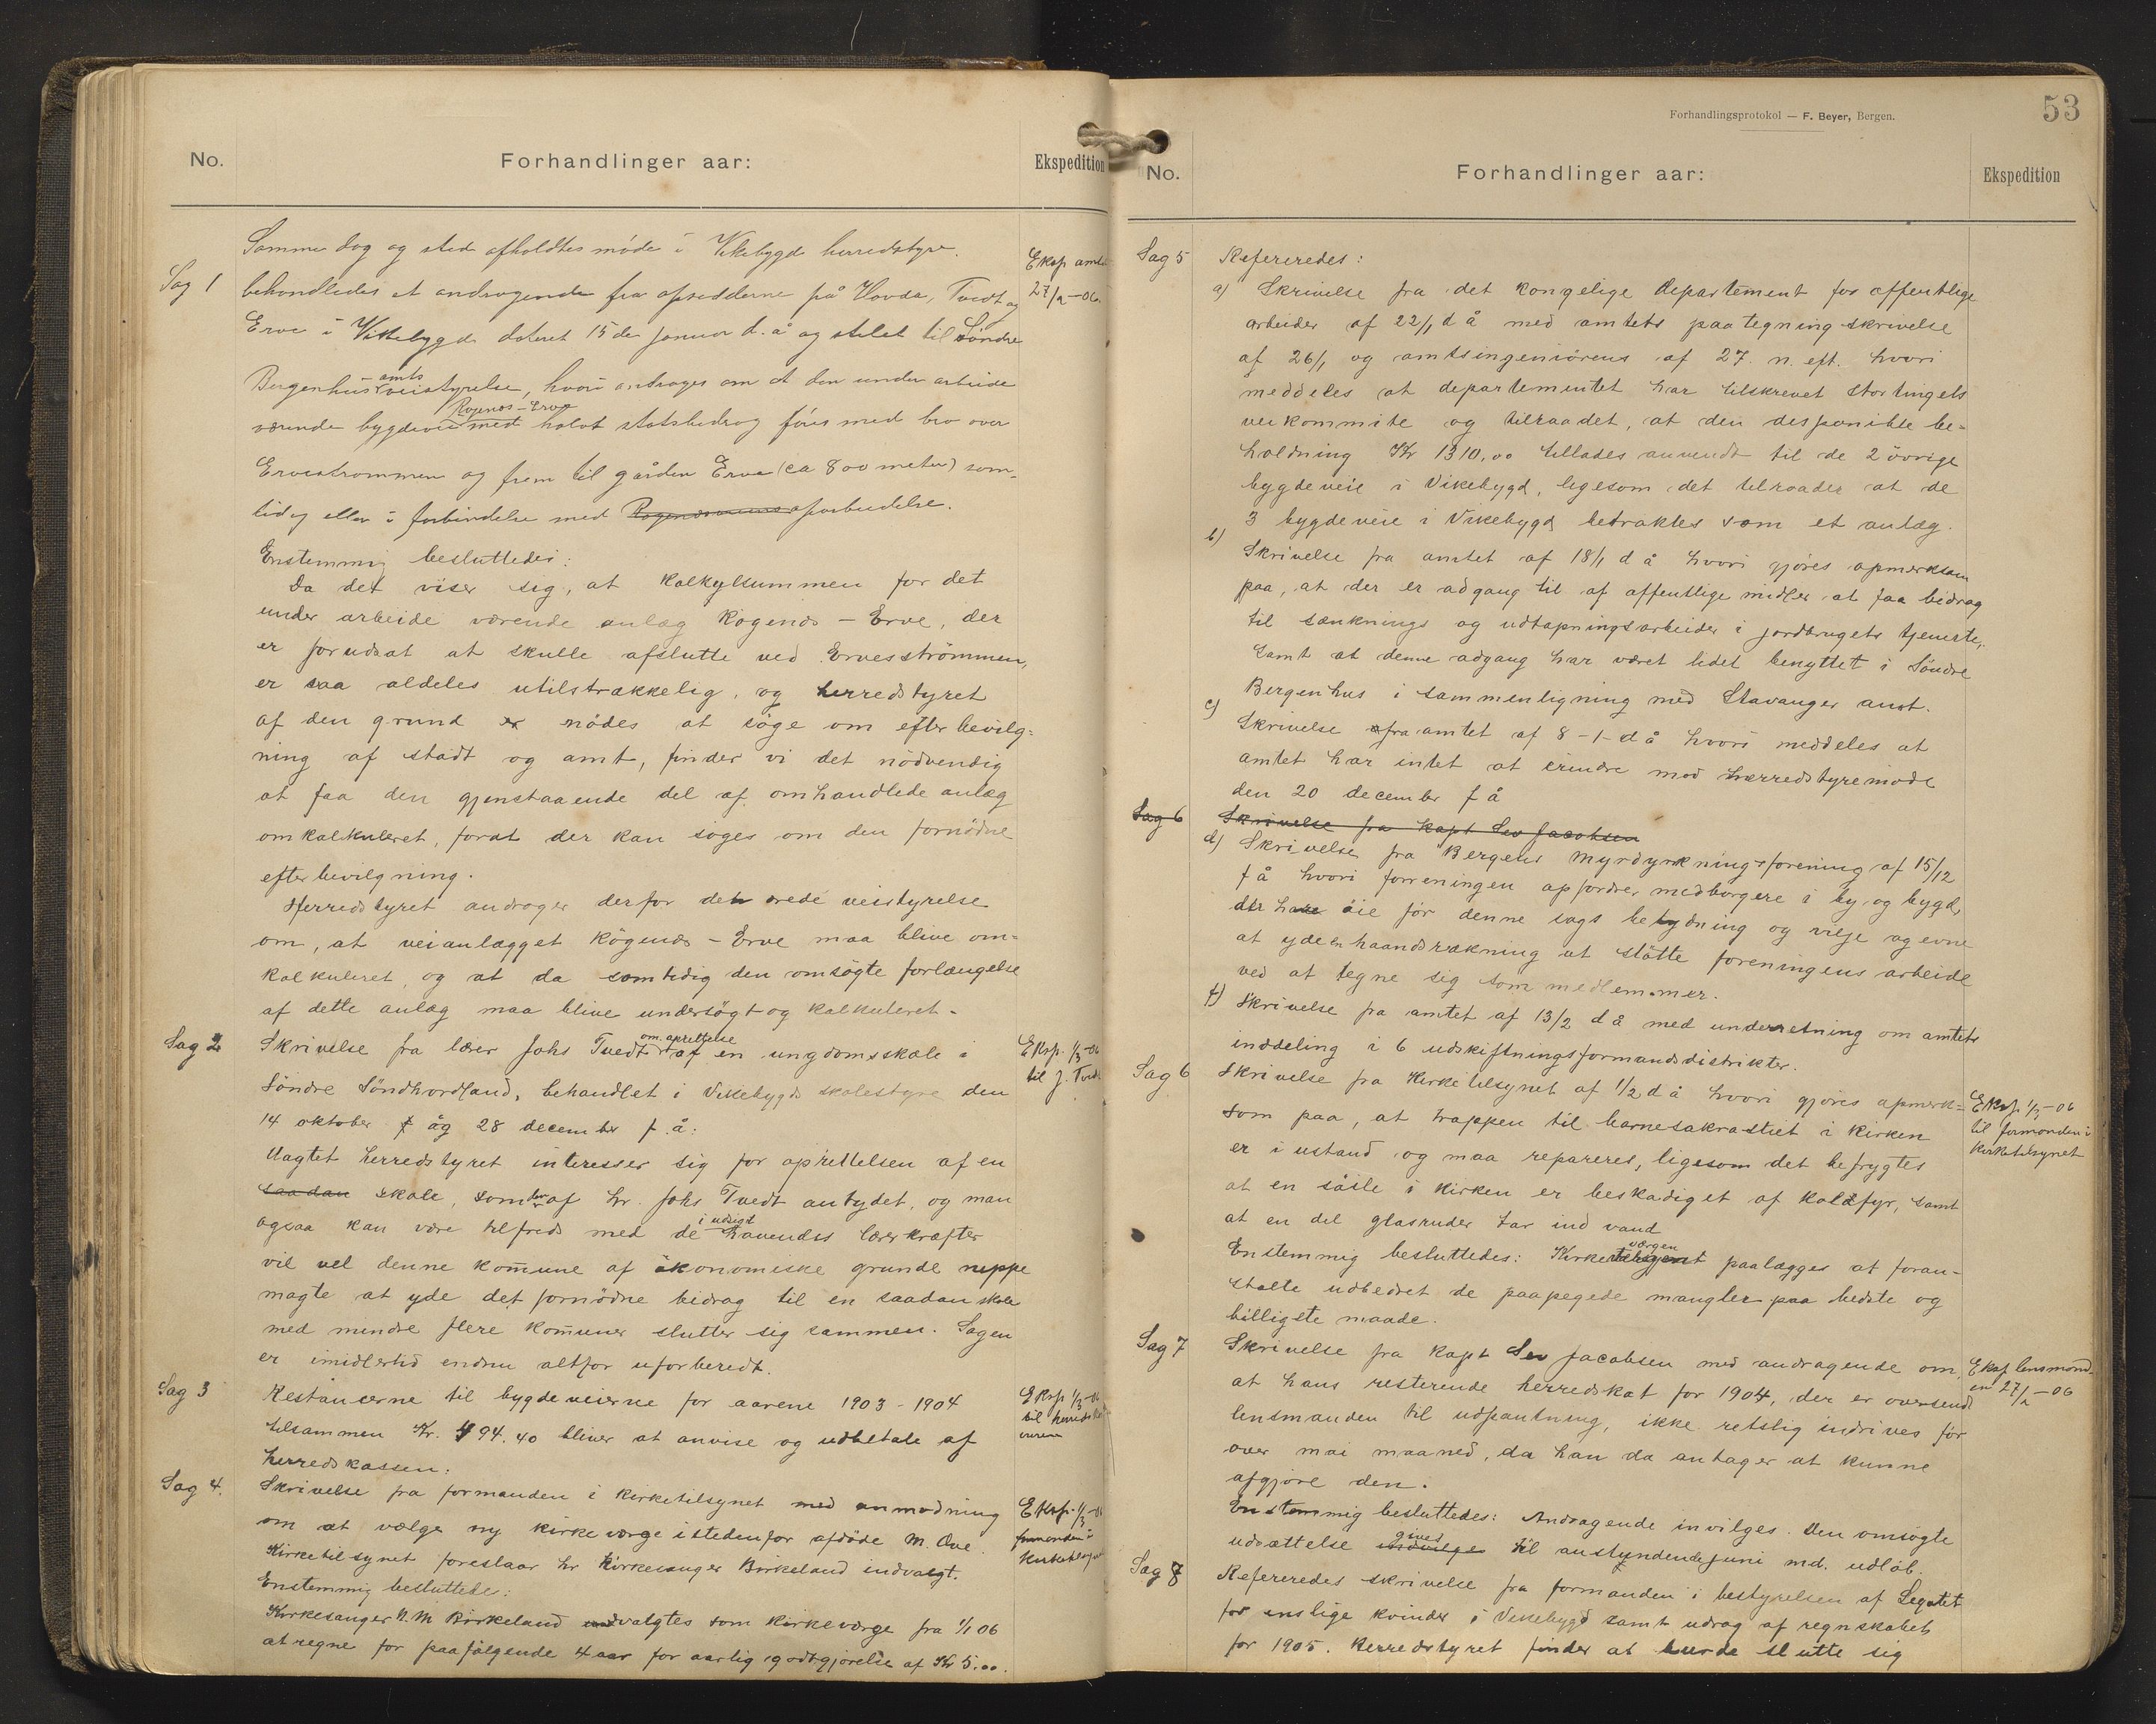 No.
Forhandlinger aar:
Ekspedition
Samme dag og sted afholdtes møde i Vikebygd herredstyre.
Sag 1
behandledes et andragende fra opsidderne på Hovda, Tvedt og
Eksp amtet
27/2-06
Erve i Vikebygd dateret 15de januar d. å og stilet til Söndre
Bergenhus amts veistyrelse, hvori andrages om at den under arbeide
værende bygdevei Røgenes-Erve med halvt statsbidrag føres med bro over
Ervestrømmen og frem til gården Erve (ca 800 meter) sam-
tidig eller i forbindelse med oparbeidelse.
Enstemmig besluttedes:
Da det viser sig, at kalkylsummen for det
under arbeide værende anlæg Røgenes - Erve, der
er forudsat at skulle afslutte ved Ervesströmmen,
er saa aldeles utilstrækkelig, og herredstyret
af den grund er nödes at søge om efter bevilg=
ning af stadt og amt, finder vi det nödvendig
at faa den gjenstaaende del af omhandlede anlæg
omkalkuleret, forat der kan søges om den fornødne
efterbevilgning.
Herredstyret andrager derfor den ærede veistyrelse
om, at veianlægget Rögenes - Erve maa blive om=
kalkuleret, og at da samtidig den omsögte forlængelse
af dette anlæg maa blive undersögt og kalkuleret.
Sag 2
Skrivelse fra lærer Johs Tvedt om oprettelse af en ungdomsskole i
Eksp. 1/3-06
til J. Tvedt
Söndre Söndhordland, behandlet i Vikebygds skolestyre den
14 oktober f åg 28 december f. å:
Uagtet herredstyret interesser sig for oprettelsen af en
saadan skole, som af hr. Johs Tvedt antydet, og man
ogsaa kan være tilfreds med de i udsigt havendes lærerkræfter
vil vel denne kommune af ökonomiske grunde neppe
magte at yde det fornödne bidrag til en saadan skole
med mindre flere kommuner slutter sig sammen. Sagen
er imidlertid endnu altfor uforberedt.
Sag 3
Restancerne til bygdeveierne for aarene 1903 - 1904
Eksp 1/3-06
til herreds
tilsammen Kr. 494.40 bliver at anvise og udbetale af
herredskassen:
Sag 4.
Skrivelse fra formanden i kirketilsynet med anmodning
Eksp. 1/3-06
formanden i
Kirketilsynet
om at vælge ny kirkeværge istedenfor afdöde M. Ove.
Kirketilsynet foreslaar hr Kirkesanger Birkeland indvalgt.
Enstemmig besluttedes:
Kirkesanger N. M Birkeland indvalgtes som kirkeværge fra 1/1 06
at regne for paafölgende 4 aar for aarlig godtgjørelse af Kr 5.00.
Forhandlingsprotokol — F. Beyer, Bergen.
53
No.
Forhandlinger aar:
Ekspedition
Sag 5
Refereredes:
a) Skrivelse fra det kongelige departement for offentlige
arbeider af 22/1 d å med amtets paategning skrivelse
af 26/1 og amtsingeniörens af 27. n. eft. hvori
meddeles at departementet har tilskrevet Stortingets
veikommite og tilraadet, at den desponible be-
holdning Kr 1310.00 tillades anvendt til de 2 övrige
bygdeveie i Vikebygd, ligesom det tilraades at de
3 bygdeveie i Vikebygd betraktes som et anlæg.
b)
Skrivelse fra amtet af 18/1 d å hvori gjöres opmerksom
paa, at der er adgang til af offentlige midler at faa bidrag
til sænknings og udtapningsarbeider i jordbrugets tjeneste,
samt at denne adgang har været lidet benyttet i Söndre
Bergenhus i sammenligning med Stavanger amt.
c)
Skrivelse fra amtet af 8-1-d å hvori meddeles at
amtet har intet at erindre mod herredstyremöde
den 20 december f å
Sag 6
Skrivelse fra kapt Sev Jacobsen
d) Skrivelse fra Bergens Myrdyrkningsforening af 15/12
f å hvori forreningen opfordrer medborgere i by og bygd,
der have öie för denne sags betydning og vilje og evne
at yde en haandsrækning at stötte foreningens arbeide
ved at tegne sig som medlemmer.
f) Skrivelse fra amtet af 13/2 d å med underretning om amtets
inddeling i 6 udskiftningsformandsdistrikter.
Sag 6
Skrivelse fra kirketilsynet af 1/2 d å hvori gjöres opmerk=
Eksp. 1/3-06
til formanden i
kirketilsynet
som paa, at trappen til barnesakrastiet i kirken
er i ustand og maa repareres, ligesom det befrygtes
at en söile i kirken er beskadiget af koldfyr, samt
at en del glasruder tar ind vand
Enstemmig besluttedes: Kirkeværgen paalægges at foran-
stalte udbedret de paapegede mangler paa bedste og
billigste maade.
Sag 7
Skrivelse fra kapt Sev Jacobsen med andragende om
Eksp lensmand-
en 27/2-06
at hans resterende herredskat for 1904, der er oversendt
lensmanden til udpantning, ikke retslig indrives för
over mai maaned, da han da antager at kunne
afgjøre den.
Enstemmig besluttedes: Andragende invilges. Den omsögte
udsættelse gives til anstundende juni md. udlöb.
Sag 8
Refereredes skrivelse fra formanden i bestyrelsen af Legatet
for enslige kvinder i Vikebygd samt udrag af regnskabet
for 1905. Herredstyret finder at burde slutte sig